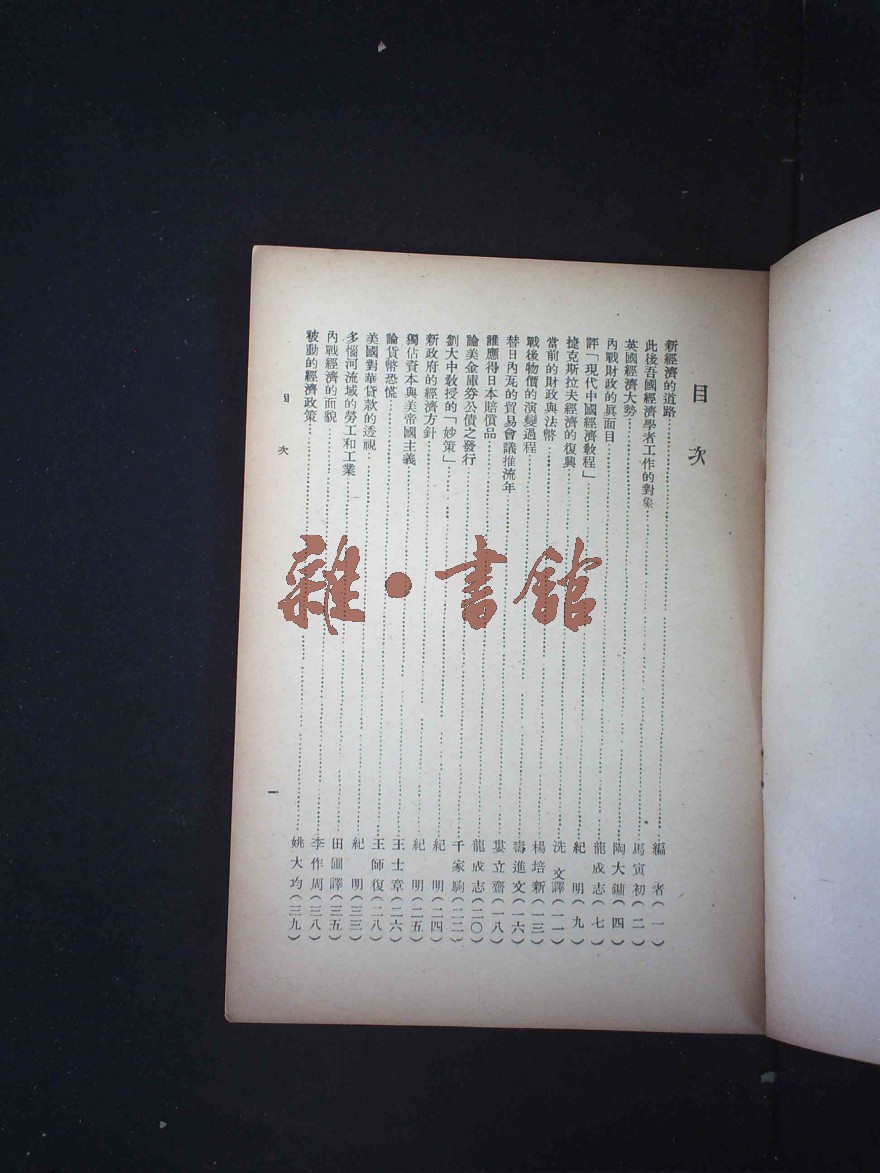 目次
新經濟的道路⋯⋯編者(一)
此後吾國經濟學者工作的對象⋯⋯馬寅初(二)
英國經濟大勢⋯⋯陶大鏞(四)
內戰財政的眞面目⋯⋯龍成志(七)
評「現代中國經濟教程」⋯⋯紀明(九)
捷克斯拉夫經濟的復興⋯⋯洗文譯(一一)
當前的財政與法幣⋯⋯楊培新(一三)
戰後物價的演變過程⋯⋯壽進文(一六)
替日內瓦的貿易會議推流年⋯⋯婁立齋(一八)
誰應得日本賠償品⋯⋯龍成志(二〇)
論美金庫券公債之發行⋯⋯千家駒(二二)
劉大中教授的「妙策」⋯⋯紀明(二四)
新政府的經濟方針⋯⋯紀明(二五)
獨佔資本與美帝國主義⋯⋯王士章(二六)
論貨幣恐慌⋯⋯王師復(二八)
美國對華貸款的透視⋯⋯紀明(三三)
多惱河流域的勞工和工業⋯⋯田圃譯(三五)
內戰經濟的面貌⋯⋯李作周(三八)
被動的經濟政策⋯⋯姚大均(三九)
目次
一
雜·書館